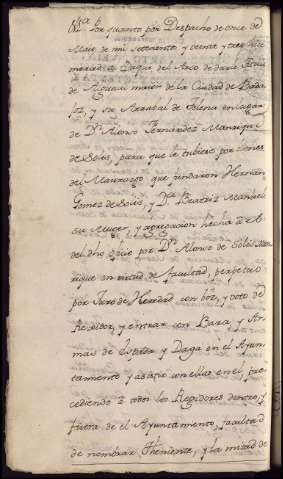 Por quanto por Despacho de once de
Maio de mil setecientos y veinte y tres hize
merced a
de Alguacil maior de la Ciudad de Bada
joz, y su Arrabal de Telena en lugar
de Dn. Alonso Fernandez Manrique
de Solis, para que le tubiese por vienes
del Maiorazgo que fundaron Hernan
Gomez de Solis, y Da. Beatriz Manuel
su Muger, y agregacion hecha a el
del dho ofizio por Dn. Alonso de Solis Man
rique en virtud de facultad, perpetuo
por Juro de Heredad con boz, y voto de
Regidor, y entrar con Bara, y Ar
mas de Espada y Daga en el Ayun
tamiento y asistir con ellas en el, pre
cediendo a todos los Regidores dentro, y
fuera de el Ayuntamiento, facultad
de nombrar Theniente, y la mitad de